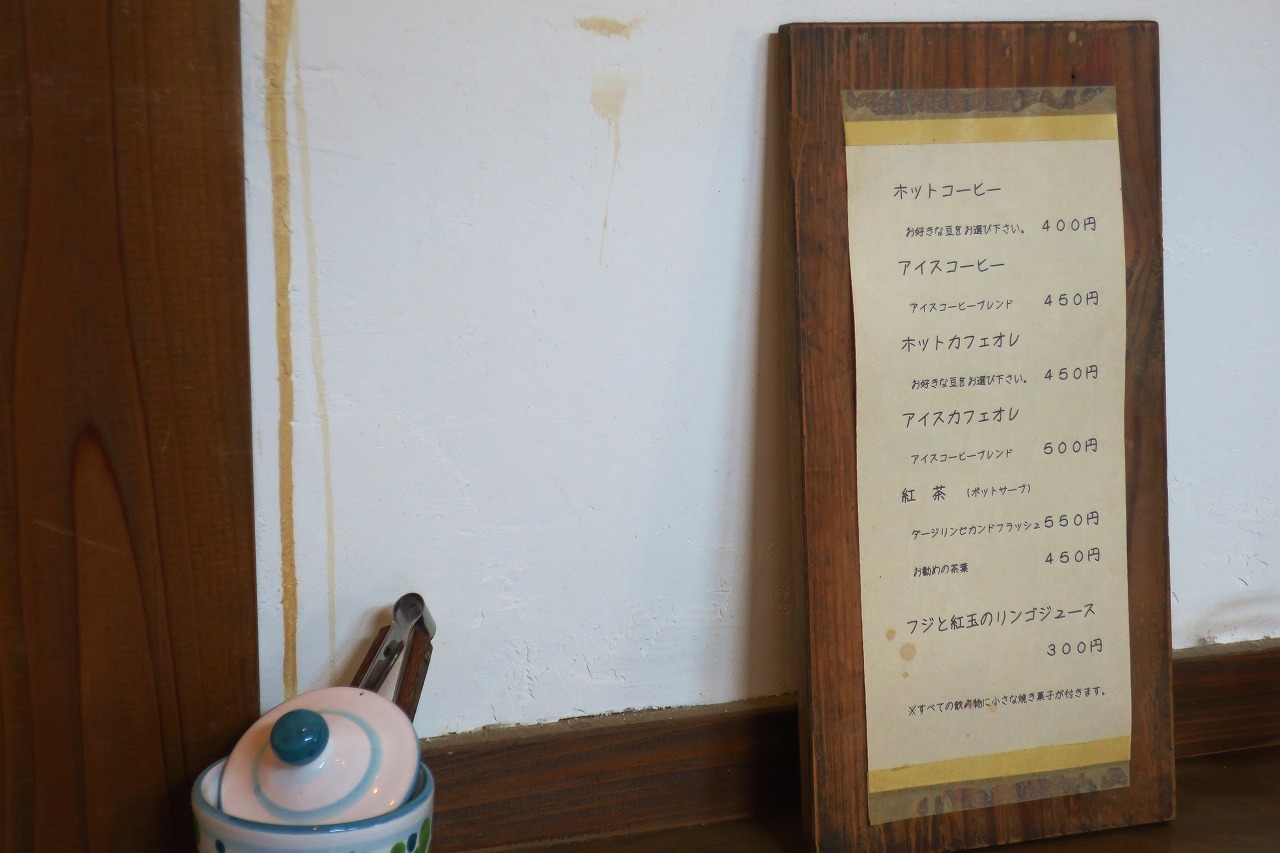 ホットコーヒー
お好きな豆をお選び下さい。 ４００円
アイスコーヒー
アイスコーヒーブレンド ４５０円
ホットカフェオレ
お好きな豆をお選び下さい。 ４５０円
アイスカフェオレ
アイスコーヒーブレンド ５００円
紅　茶　（ポットサーブ）
ダージリンセカンドフラッシュ ５５０円
お勧めの茶葉 ４５０円
フジと紅玉のリンゴジュース
３００円
※すべての飲み物に小さな焼き菓子が付きます。